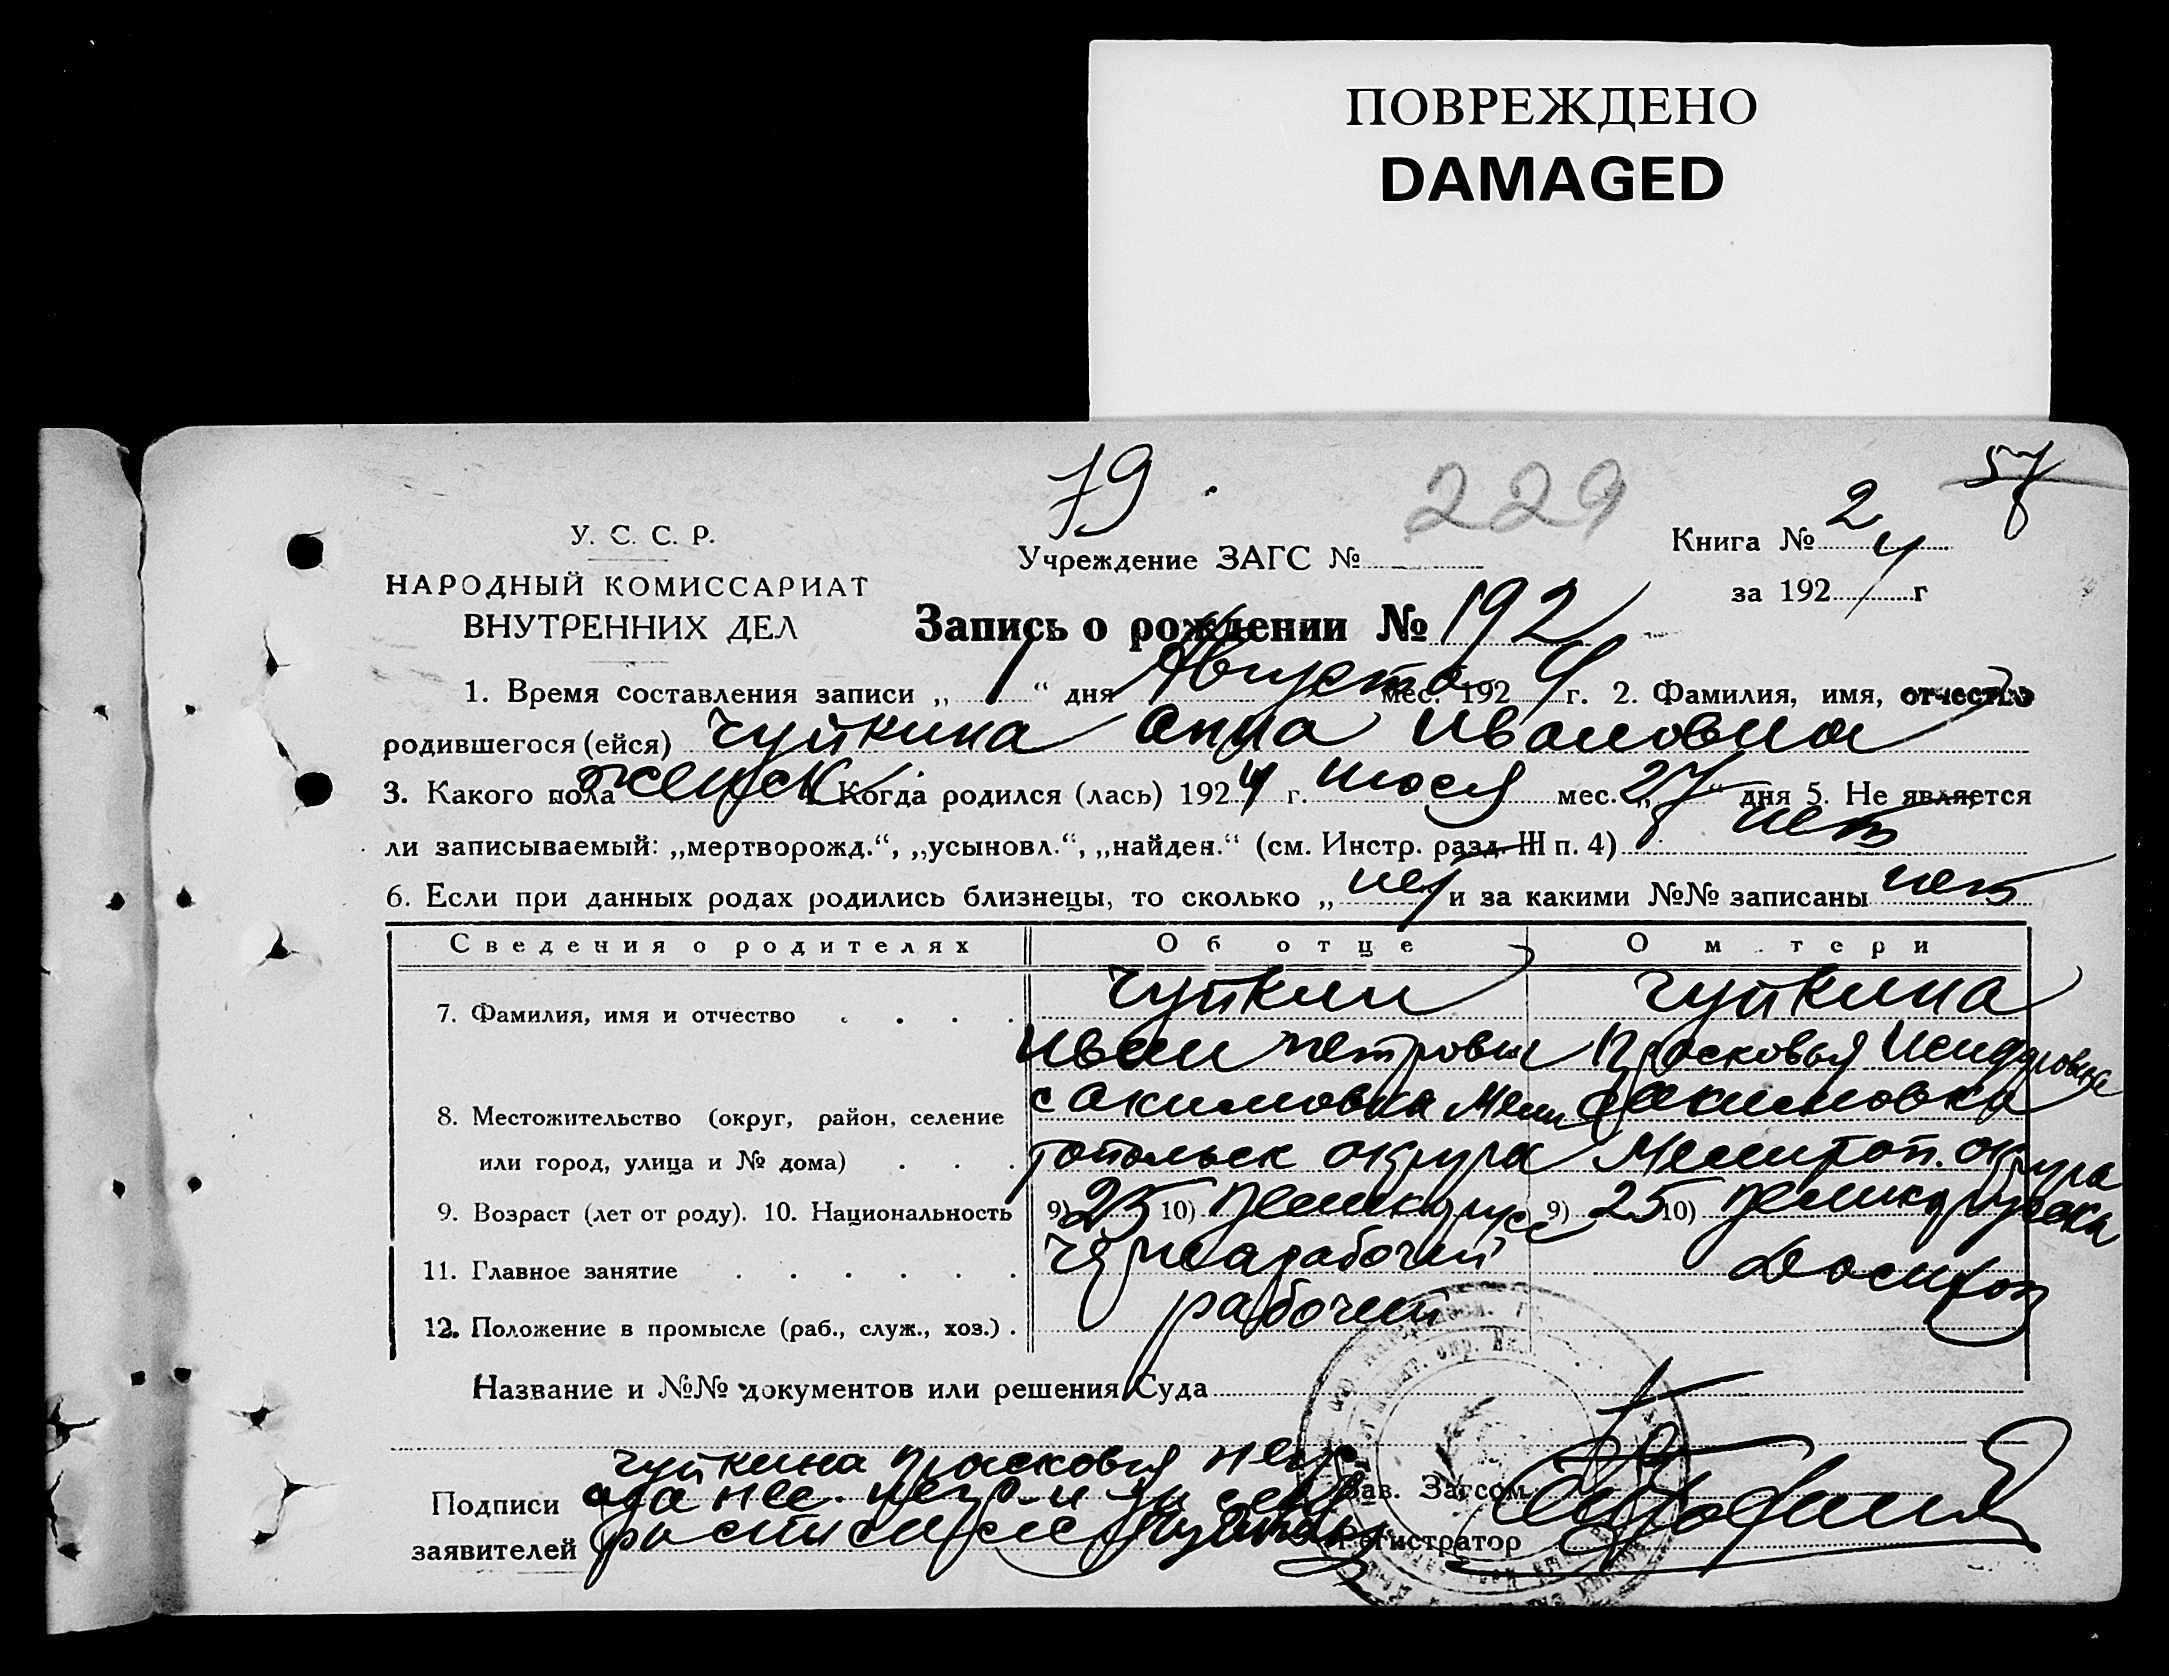 ПОВРЕЖДЕНО
DAMAGED
79. 229 57
У. С. С. Р.
НАРОДНЫЙ КОМИССАРИАТ
ВНУТРЕННИХ ДЕЛ
Учреждение ЗАГС №
Книга № 2
за 1924 г
Запись о рождении № 192
1. Время составления записи „ 1 “ дня Августа мес. 1924 г. 2. Фамилия, имя, отчество
родившегося (ейся) Чуйкина Анна Ивановна
3. Какого пола женск 4. Когда родился (лась) 1924 г. июля мес. „27“ дня 5. Не является
ли записываемый: „мертворожд.“, „усыновл.“, „найден.“ (см. Инстр. разд. III п. 4) нет
6. Если при данных родах родились близнецы, то сколько „ нет и за какими №№ записаны нет
Сведения о родителях Об отце О м тери
7. Фамилия, имя и отчество . . . . Чуйкин Чуйкина
Иван Петрович Прасковья Исидоровна
8. Местожительство (округ, район, селение с Акимовка Мели Акимовка
или город, улица и № дома) . . . топольск округа Мелитоп. округа
9. Возраст (лет от роду). 10. Национальность 9) 25 10) великорус 9) 25 10) великорусска
11. Главное занятие . . . . . . чернорабочий Домохоз
12. Положение в промысле (раб., служ., хоз.) . рабочий
Название и №№ документов или решения Суда
Чуйкина Прасковья негр
Подписи а за нее негр. и за себя
заявителей расписался
Зав. Загсом
Регистратор